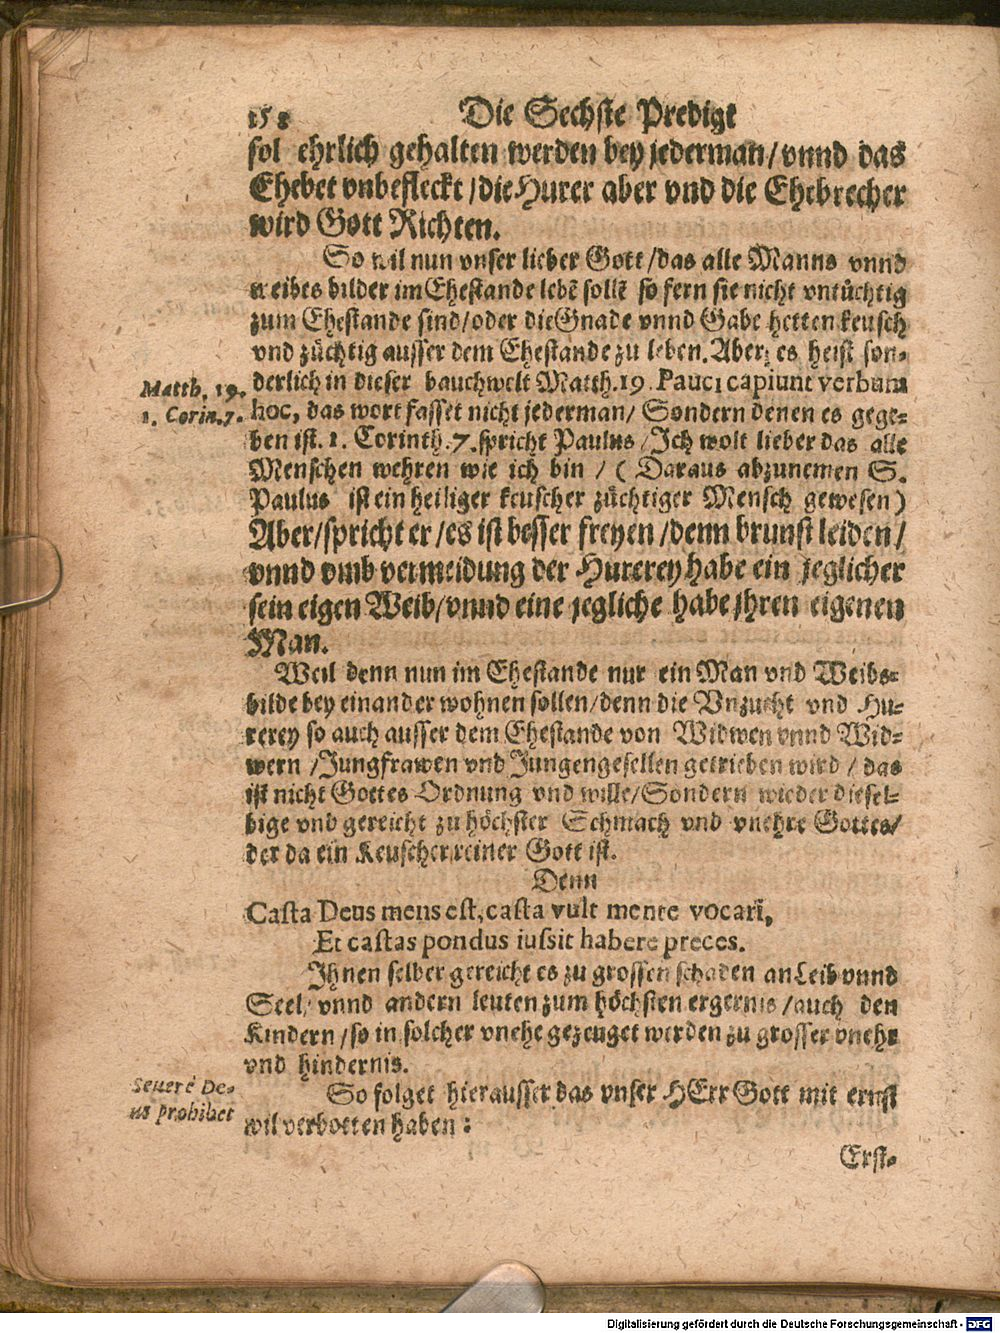 158 Die Sechste Predigt
sol ehrlich gehalten werden bey jederman/ vnnd das
Ehebet vnbefleckt /die Hurer aber vnd die Ehebrecher
wird Gott Richten.
So wil nun vnser lieber Gott /das alle Manns vnnd
weibes bilder im Ehestande lebē sollē so fern sie nicht vntüchtig
zum Ehestande sind/oder die Gnade vnnd Gabe hetten keusch
vnd züchtig ausser dem Ehestande zu leben. Aber, es heist son-
derlich in dieser bauchwelt Matth.19. Pauci capiunt verbum
Matth. 19.
hoc, das wort fasset nicht jederman/ Sondern denen es gege-
1. Corin.7.
ben ist. 1. Corinth.7.spricht Paulus /Ich wolt lieber das alle
Menschen wehren wie ich bin / ( Daraus abzunemen S.
Paulus ist ein heiliger keuscher züchtiger Mensch gewesen)
Aber/spricht er /es ist besser freyen /denn brunst leiden /
vnnd vmb vermeidung der Hurerey habe ein jeglicher
sein eigen Weib/vnnd eine jegliche habe jhren eigenen
Man.
Weil denn nun im Ehestande nur ein Man vnd Weibs-
bilde bey einander wohnen sollen/denn die Vnzucht vnd Hu-
rerey so auch ausser dem Ehestande von Widwen vnnd Wid-
wern /Jungfrawen vnd Jungengesellen getrieben wird / das
ist nicht Gottes Ordnung vnd wille/Sondern wieder diesel-
bige vnd gereicht zu höchster Schmach vnd vnehre Gottes/
der da ein Keuscher reiner Gott ist.
Denn
Casta Deus mens est, casta vult mente vocari,
Et castas pondus iussit habere preces.
Ihnen selber gereicht es zu grossen schaden an Leib vnnd
Seel/ vnnd andern leuten zum höchsten ergernis /auch den
Kindern /so in solcher vnehe gezeuget werden zu grosser vnehr
vnd hindernis.
So folget hierausser das vnser HErr Gott mit ernst
Seuerè De-
us prohibet
wil verbotten haben:
Erst-
Digitalisierung gefördert durch die Deutsche Forschungsgemeinschaft - DFG